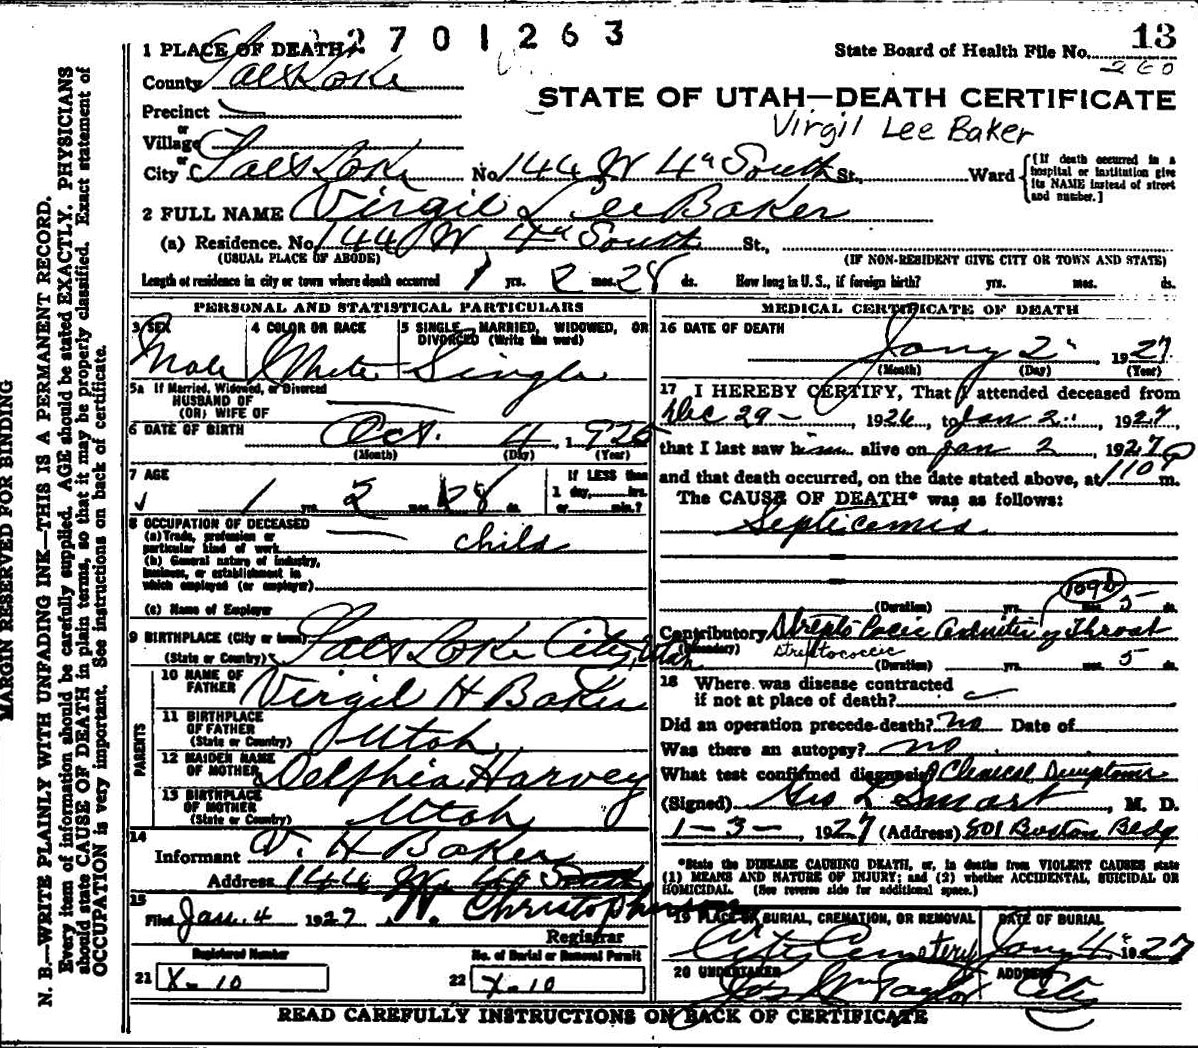 2701263
13
State Board of Health File No.
260
1 PLACE OF DEATH
County Salt Lake
STATE OF UTAH—DEATH CERTIFICATE
Precinct
Virgil Lee Baker
or
Village
or
City Salt Lake No. 144 W 4" South St., Ward {[If death occurred in a hospital or institution give its NAME instead of street and number.]
2 FULL NAME Virgil Lee Baker
(a) Residence. No. 144 W 4" South St.,
(USUAL PLACE OF ABODE) (IF NON-RESIDENT GIVE CITY OR TOWN AND STATE)
Length of residence in city or town where death occurred 1 yrs. 2 mos. 28 ds. How long in U. S., if foreign birth? yrs. mos. ds.
PERSONAL AND STATISTICAL PARTICULARS
3 SEX Male
4 COLOR OR RACE White
5 SINGLE, MARRIED, WIDOWED, OR DIVORCED (Write the word) Single
5a If Married, Widowed, or Divorced
HUSBAND OF
(OR) WIFE OF
6 DATE OF BIRTH Oct. 4, 1925
(Month) (Day) (Year)
7 AGE
1 yrs. 2 mos. 28 ds.
If LESS than
1 day, hrs.
or min.?
8 OCCUPATION OF DECEASED
(a) Trade, profession or
particular kind of work child
(b) General nature of industry,
business, or establishment in
which employed (or employer)
(c) Name of Employer
9 BIRTHPLACE (City or town) Salt Lake City, Utah
(State or Country)
PARENTS
10 NAME OF FATHER Virgil H Baker
11 BIRTHPLACE OF FATHER Utah
(State or Country)
12 MAIDEN NAME OF MOTHER Delphia Harvey
13 BIRTHPLACE OF MOTHER Utah
(State or Country)
14
Informant V. H Baker
Address 144 W. 4th South
15
Filed Jan. 4 1927 W. Christopherson
Registrar
Registered Number
21 X-10
No. of Burial or Removal Permit
22 X-10
MEDICAL CERTIFICATE OF DEATH
16 DATE OF DEATH
Jany 2" 1927
(Month) (Day) (Year)
17 I HEREBY CERTIFY, That I attended deceased from
Dec 29 - 1926, to Jan 2.. 1927,
that I last saw him alive on Jan 2 1927
and that death occurred, on the date stated above, at 110 P m.
The CAUSE OF DEATH* was as follows:
Septicemia
109b
(Duration) yrs. mos. 5 ds.
Contributory Strepto Cocic of Throat
(Secondary) streptococcic
(Duration) yrs. mos. 5 ds.
18 Where was disease contracted
if not at place of death?
Did an operation precede death? no Date of
Was there an autopsy? no
What test confirmed diagnosis? Clinical Symptoms
(Signed) Geo L Smart, M. D.
1-3-, 1927 (Address) 801 Boston Bldg
*State the DISEASE CAUSING DEATH, or, in deaths from VIOLENT CAUSES state
(1) MEANS AND NATURE OF INJURY; and (2) whether ACCIDENTAL, SUICIDAL OR
HOMICIDAL. (See reverse side for additional space.)
19 PLACE OF BURIAL, CREMATION, OR REMOVAL City Cemetery
DATE OF BURIAL Jany 4" 1927
20 UNDERTAKER Jos Wm Taylor
ADDRESS City
READ CAREFULLY INSTRUCTIONS ON BACK OF CERTIFICATE
MARGIN RESERVED FOR BINDING
N. B.—WRITE PLAINLY WITH UNFADING INK—THIS IS A PERMANENT RECORD.
Every item of information should be carefully supplied. AGE should be stated EXACTLY. PHYSICIANS
should state CAUSE OF DEATH in plain terms, so that it may be properly classified. Exact statement of
OCCUPATION is very important. See instructions on back of certificate.